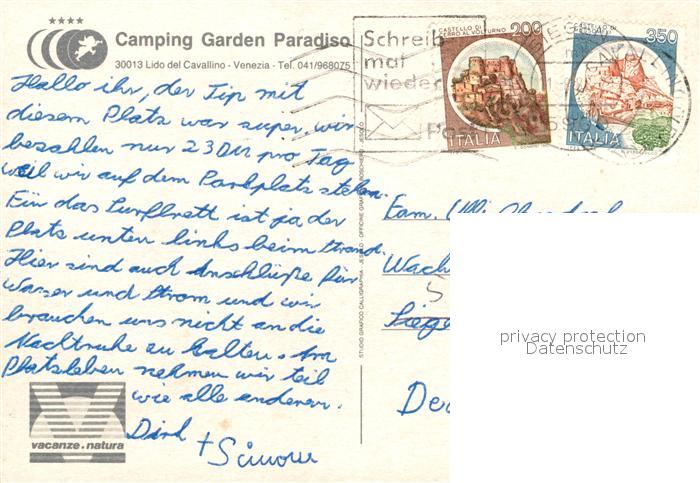 Camping Garden Paradiso
30013 Lido del Cavallino - Venezia - Tel. 041/968075
Schreib
mal
wieder
Post
CASTELLO DI
CERRO AL VOLTURNO
200
ITALIA
350
ITALIA
Hallo ihr, der Tip mit
diesem Platz war super, wir
bezahlen nur 23 DM pro Tag
weil wir auf dem Parkplatz stehen.
Für das Surfbrett ist ja der
Platz unten links beim Strand.
Hier sind auch Anschlüße für
Wasser und Strom und wir
brauchen uns nicht an die
Nachtruhe zu halten. Am
Platzleben nehmen wir teil
wie alle anderen.
Dirk
+ Simone
Fam. Ulli
Wach
5
Siege
De
vacanze natura
STUDIO GRAFICO CALLIGRAPHIA - JESOLO - OFFICINE GRAFICHE BOSCHIERO - JESOLO
privacy protection
Datenschutz